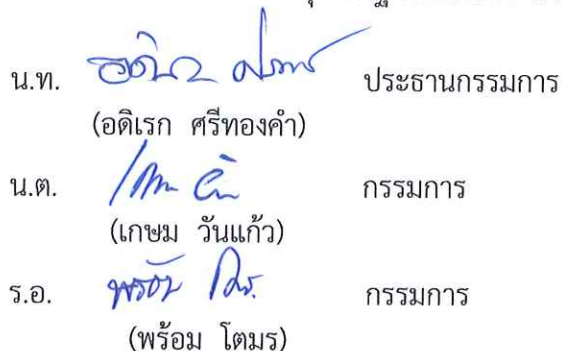 น.ท. ประธานกรรมการ
(อดิเรก ศรีทองคำ)
น.ต. กรรมการ
(เกษม วันแก้ว)
ร.อ. กรรมการ
(พร้อม โตมร)